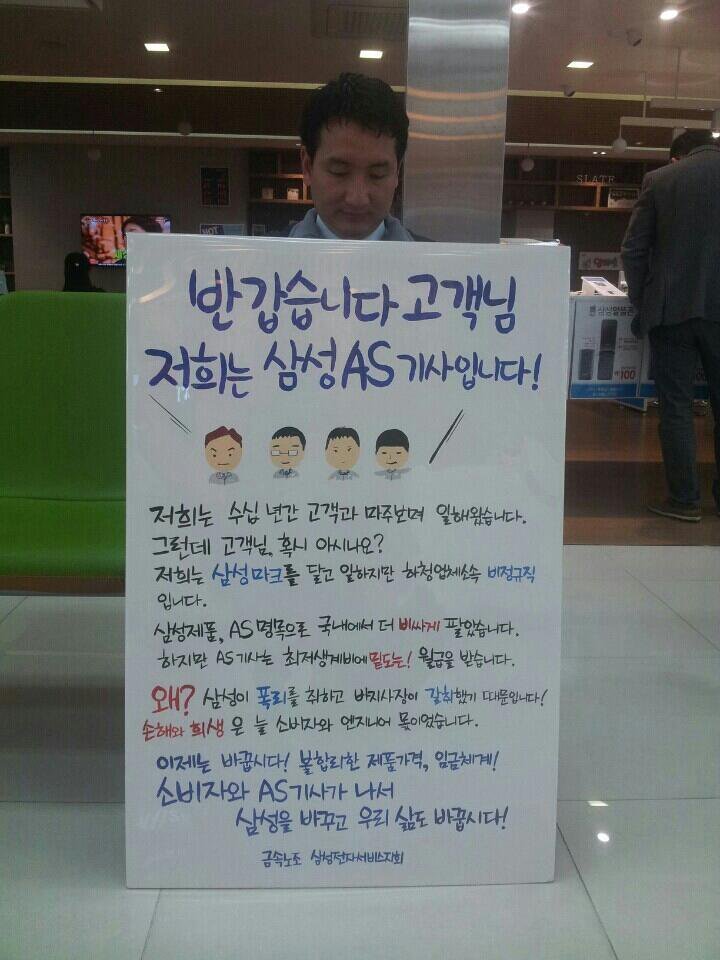 반갑습니다 고객님
저희는 삼성AS기사입니다!
저희는 수십 년간 고객과 마주보며 일해왔습니다.
그런데 고객님, 혹시 아시나요?
저희는 삼성마크를 달고 일하지만 하청업체소속 비정규직
입니다.
삼성제품, AS명목으로 국내에서 더 비싸게 팔았습니다.
하지만 AS기사는 최저생계비에 밑도는! 월급을 받습니다.
왜? 삼성이 폭리를 취하고 바지사장이 갈취했기 때문입니다!
손해와 희생은 늘 소비자와 엔지니어 몫이었습니다.
이제는 바꿉시다! 불합리한 제품가격, 임금체계!
소비자와 AS기사가 나서
삼성을 바꾸고 우리 삶도 바꿉시다!
금속노조 삼성전자서비스지회
SLATE
HOT
100